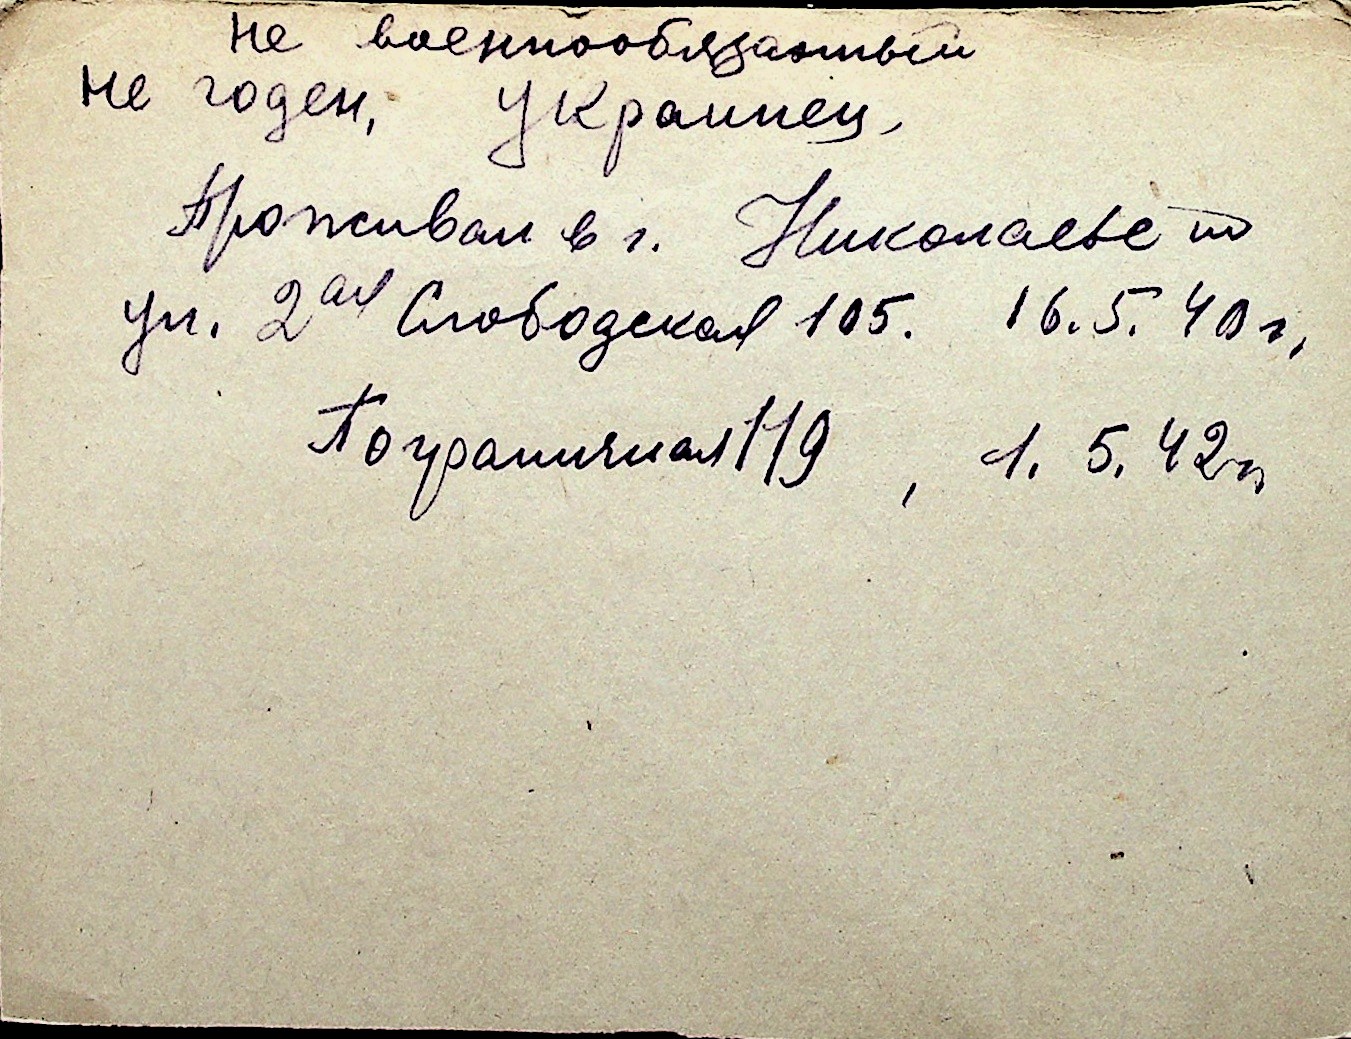 не военнообязанный
не годен, Украинец,
Проживал в г. Николаеве по
ул. 2ая Слободская 105. 16.5.40 г,
Пограничная 119, 1.5.42 г,